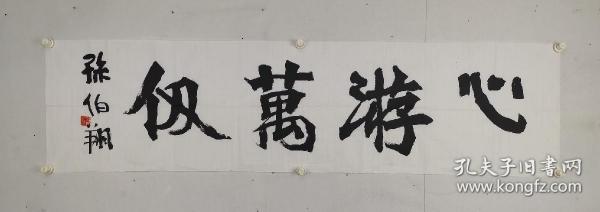 心游萬仞
孫伯翔
孔夫子旧书网
www.kongfz.com